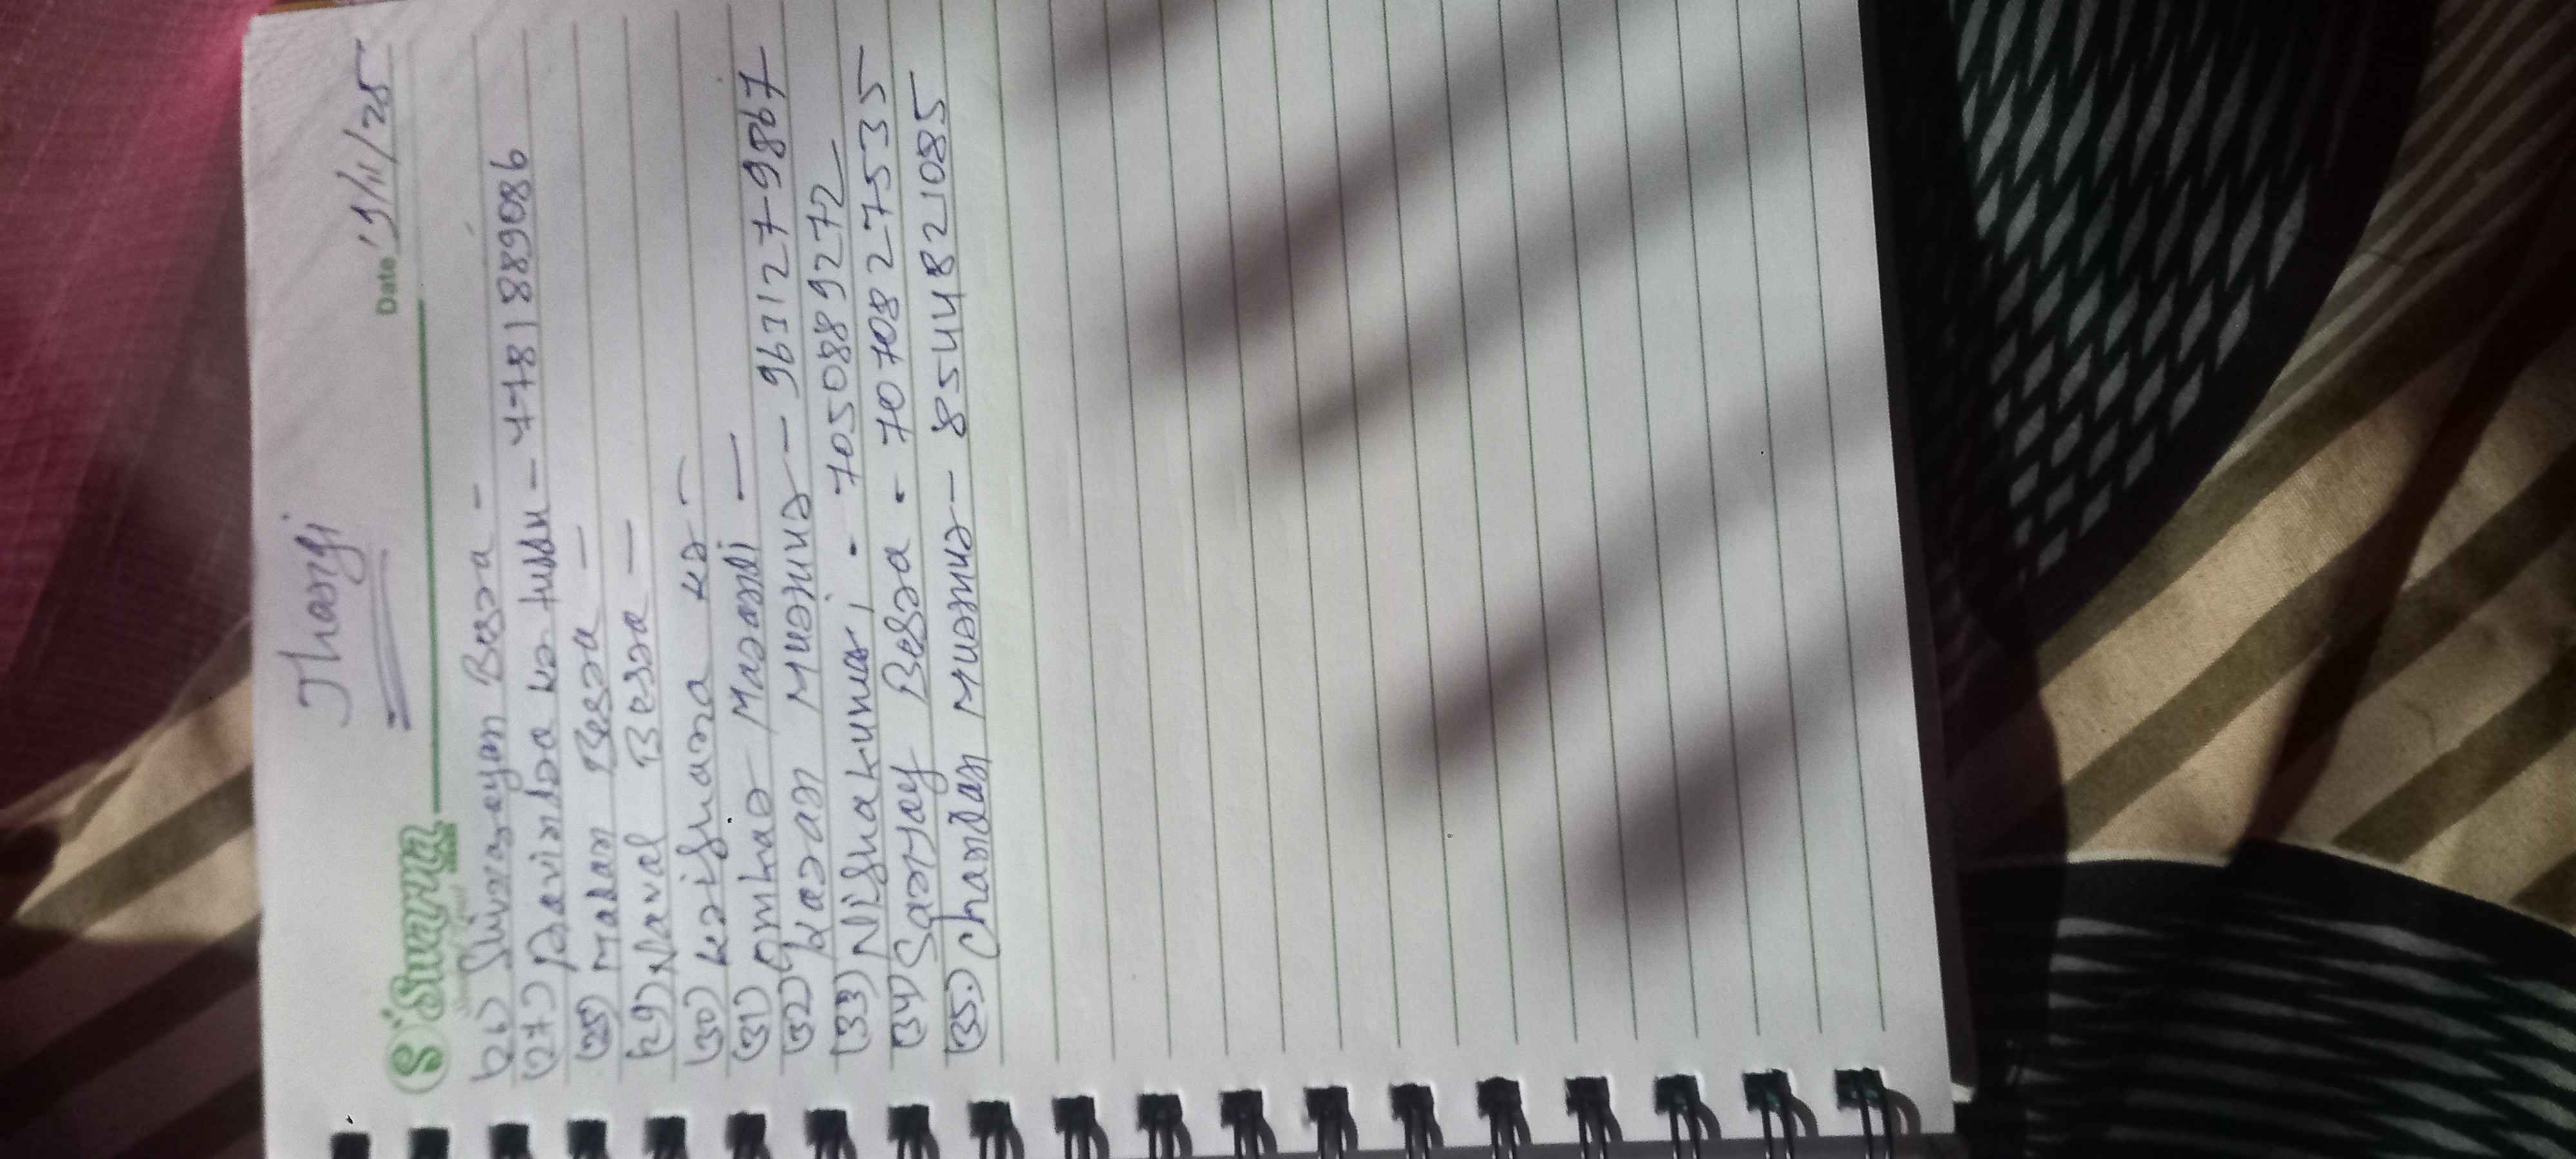 Jhangi
Suvarna
Date 19/11/25
(26) Shivnarayan Besra -
(27) Ravindra kr. tuddu - 7781889086
(28) Madan Besra -
(29) Naval Besra -
(30) krishna kr -
(31) Omkar Marandi -
(32) karan Murmur - 9631279867
(33) Nisha kumari - 7050889272
(34) Sanjay Besra - 7070827535
(35) Chandan Murmur - 8544821085